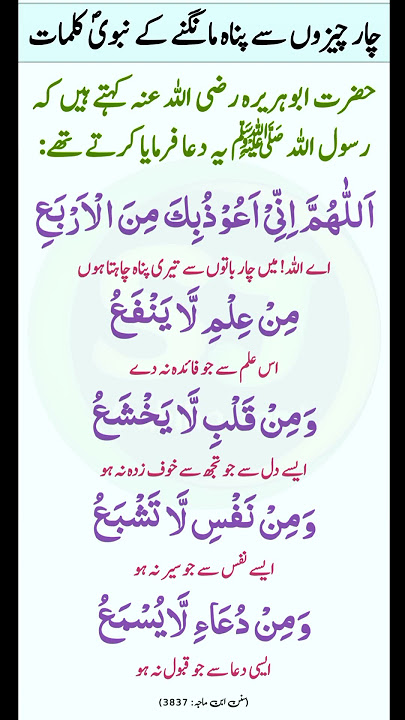 چار چیزوں سے پناہ مانگنے کے نبویؐ کلمات
حضرت ابوہریرہ رضی اللہ عنہ کہتے ہیں کہ
رسول اللہ ﷺ یہ دعا فرمایا کرتے تھے:
اَللّٰهُمَّ اِنِّیْ اَعُوْذُبِكَ مِنَ الْاَرْبَعِ
اے اللہ! میں چار باتوں سے تیری پناہ چاہتا ہوں
مِنْ عِلْمٍ لَّا یَنْفَعُ
اس علم سے جو فائدہ نہ دے
وَمِنْ قَلْبٍ لَّا یَخْشَعُ
ایسے دل سے جو تجھ سے خوف زدہ نہ ہو
وَمِنْ نَفْسٍ لَّا تَشْبَعُ
ایسے نفس سے جو سیر نہ ہو
وَمِنْ دُعَاءٍ لَّا یُسْمَعُ
ایسی دعا سے جو قبول نہ ہو
(سنن ابن ماجہ: 3837)